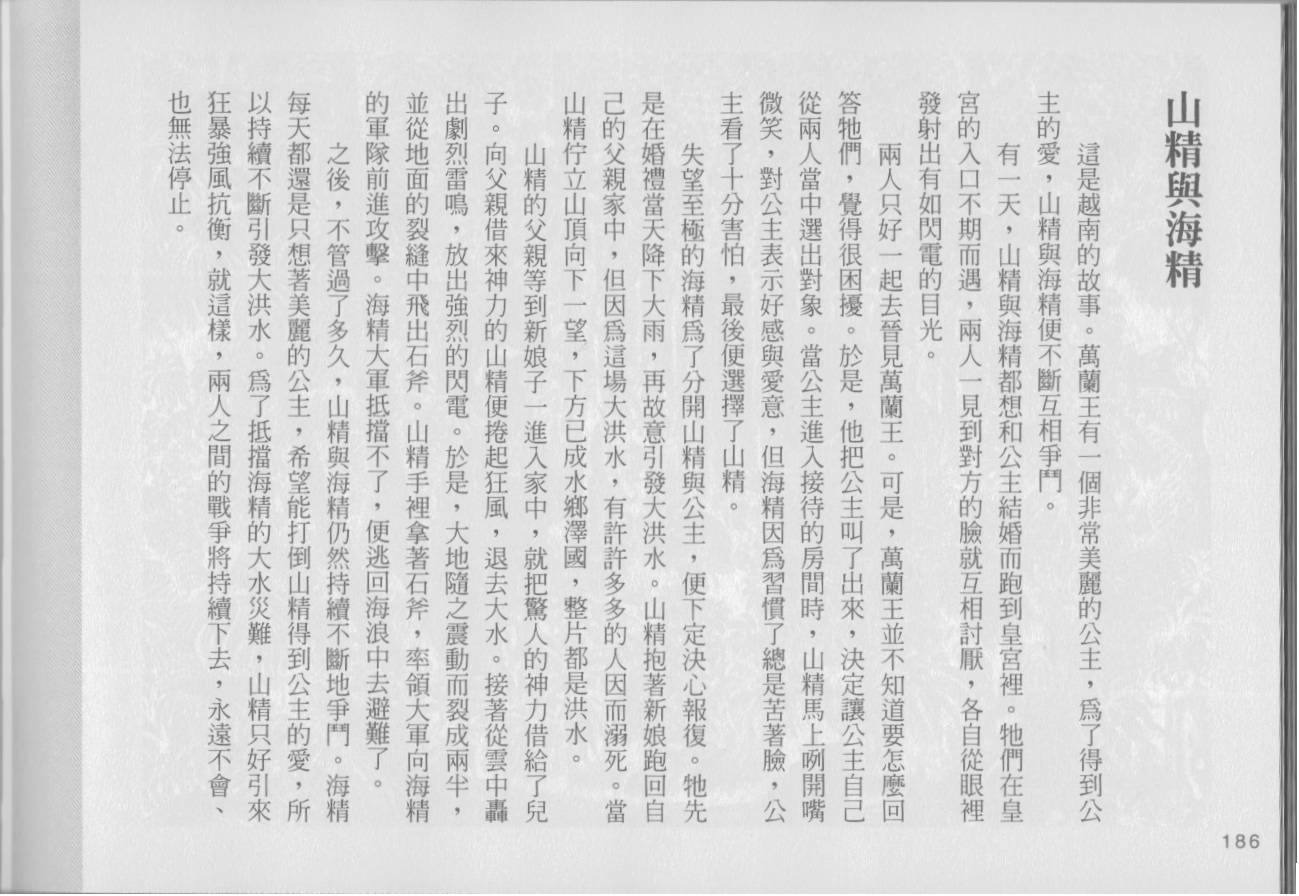 山精與海精
這是越南的故事。萬蘭王有一個非常美麗的公主，爲了得到公
主的愛，山精與海精便不斷互相爭鬥。
有一天，山精與海精都想和公主結婚而跑到皇宮裡。牠們在皇
宮的入口不期而遇，兩人一見到對方的臉就互相討厭，各自從眼裡
發射出有如閃電的目光。
兩人只好一起去晉見萬蘭王。可是，萬蘭王並不知道要怎麼回
答牠們，覺得很困擾。於是，他把公主叫了出來，決定讓公主自己
從兩人當中選出對象。當公主進入接待的房間時，山精馬上咧開嘴
微笑，對公主表示好感與愛意，但海精因爲習慣了總是苦著臉，公
主看了十分害怕，最後便選擇了山精。
失望至極的海精爲了分開山精與公主，便下定決心報復。牠先
是在婚禮當天降下大雨，再故意引發大洪水。山精抱著新娘跑回自
己的父親家中，但因爲這場大洪水，有許許多多的人因而溺死。當
山精佇立山頂向下一望，下方已成水鄉澤國，整片都是洪水。
山精的父親等到新娘子一進入家中，就把驚人的神力借給了兒
子。向父親借來神力的山精便捲起狂風，退去大水。接著從雲中轟
出劇烈雷鳴，放出強烈的閃電。於是，大地隨之震動而裂成兩半，
並從地面的裂縫中飛出石斧。山精手裡拿著石斧，率領大軍向海精
的軍隊前進攻擊。海精大軍抵擋不了，便逃回海浪中去避難了。
之後，不管過了多久，山精與海精仍然持續不斷地爭鬥。海精
每天都還是只想著美麗的公主，希望能打倒山精得到公主的愛，所
以持續不斷引發大洪水。爲了抵擋海精的大水災難，山精只好引來
狂暴強風抗衡，就這樣，兩人之間的戰爭將持續下去，永遠不會、
也無法停止。
186